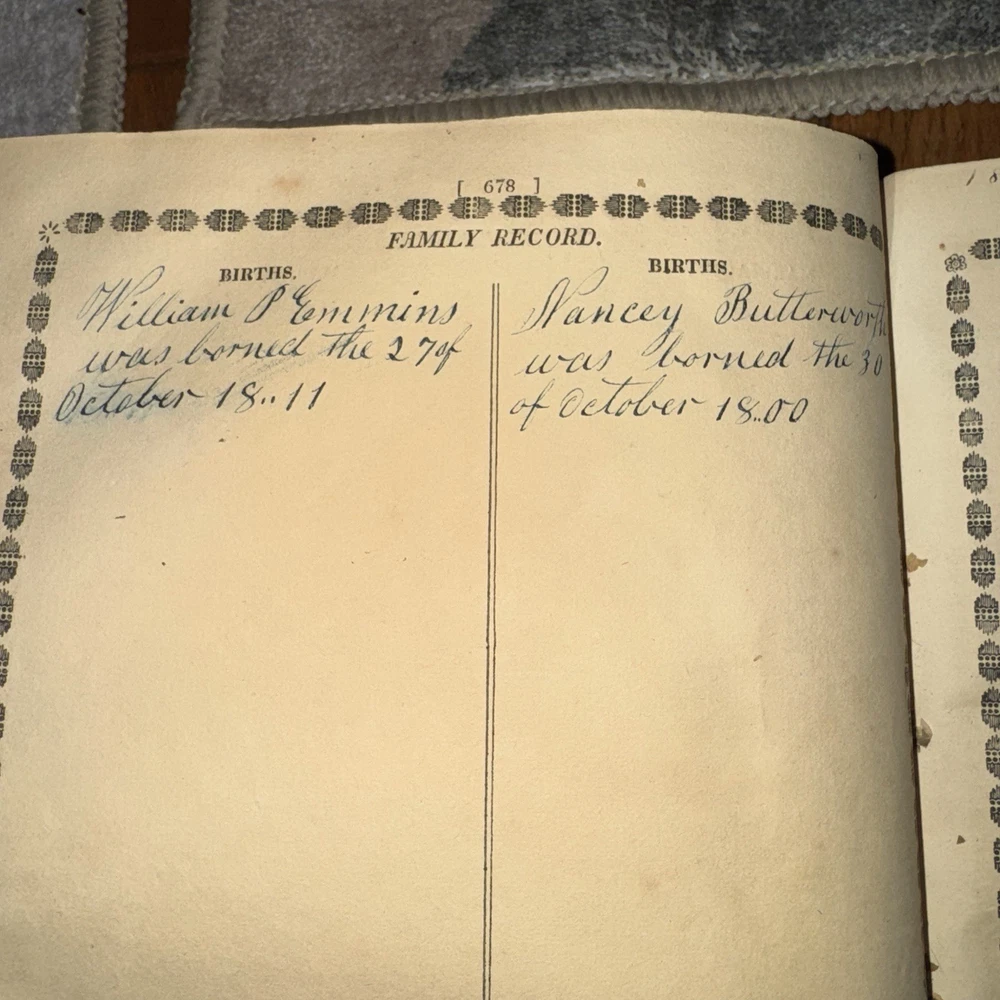 [ 678 ]
FAMILY RECORD.
BIRTHS.
William P Emmins
was borned the 27 of
October 18..11
BIRTHS.
Nancey Butterworth
was borned the 30
of October 18..00
18